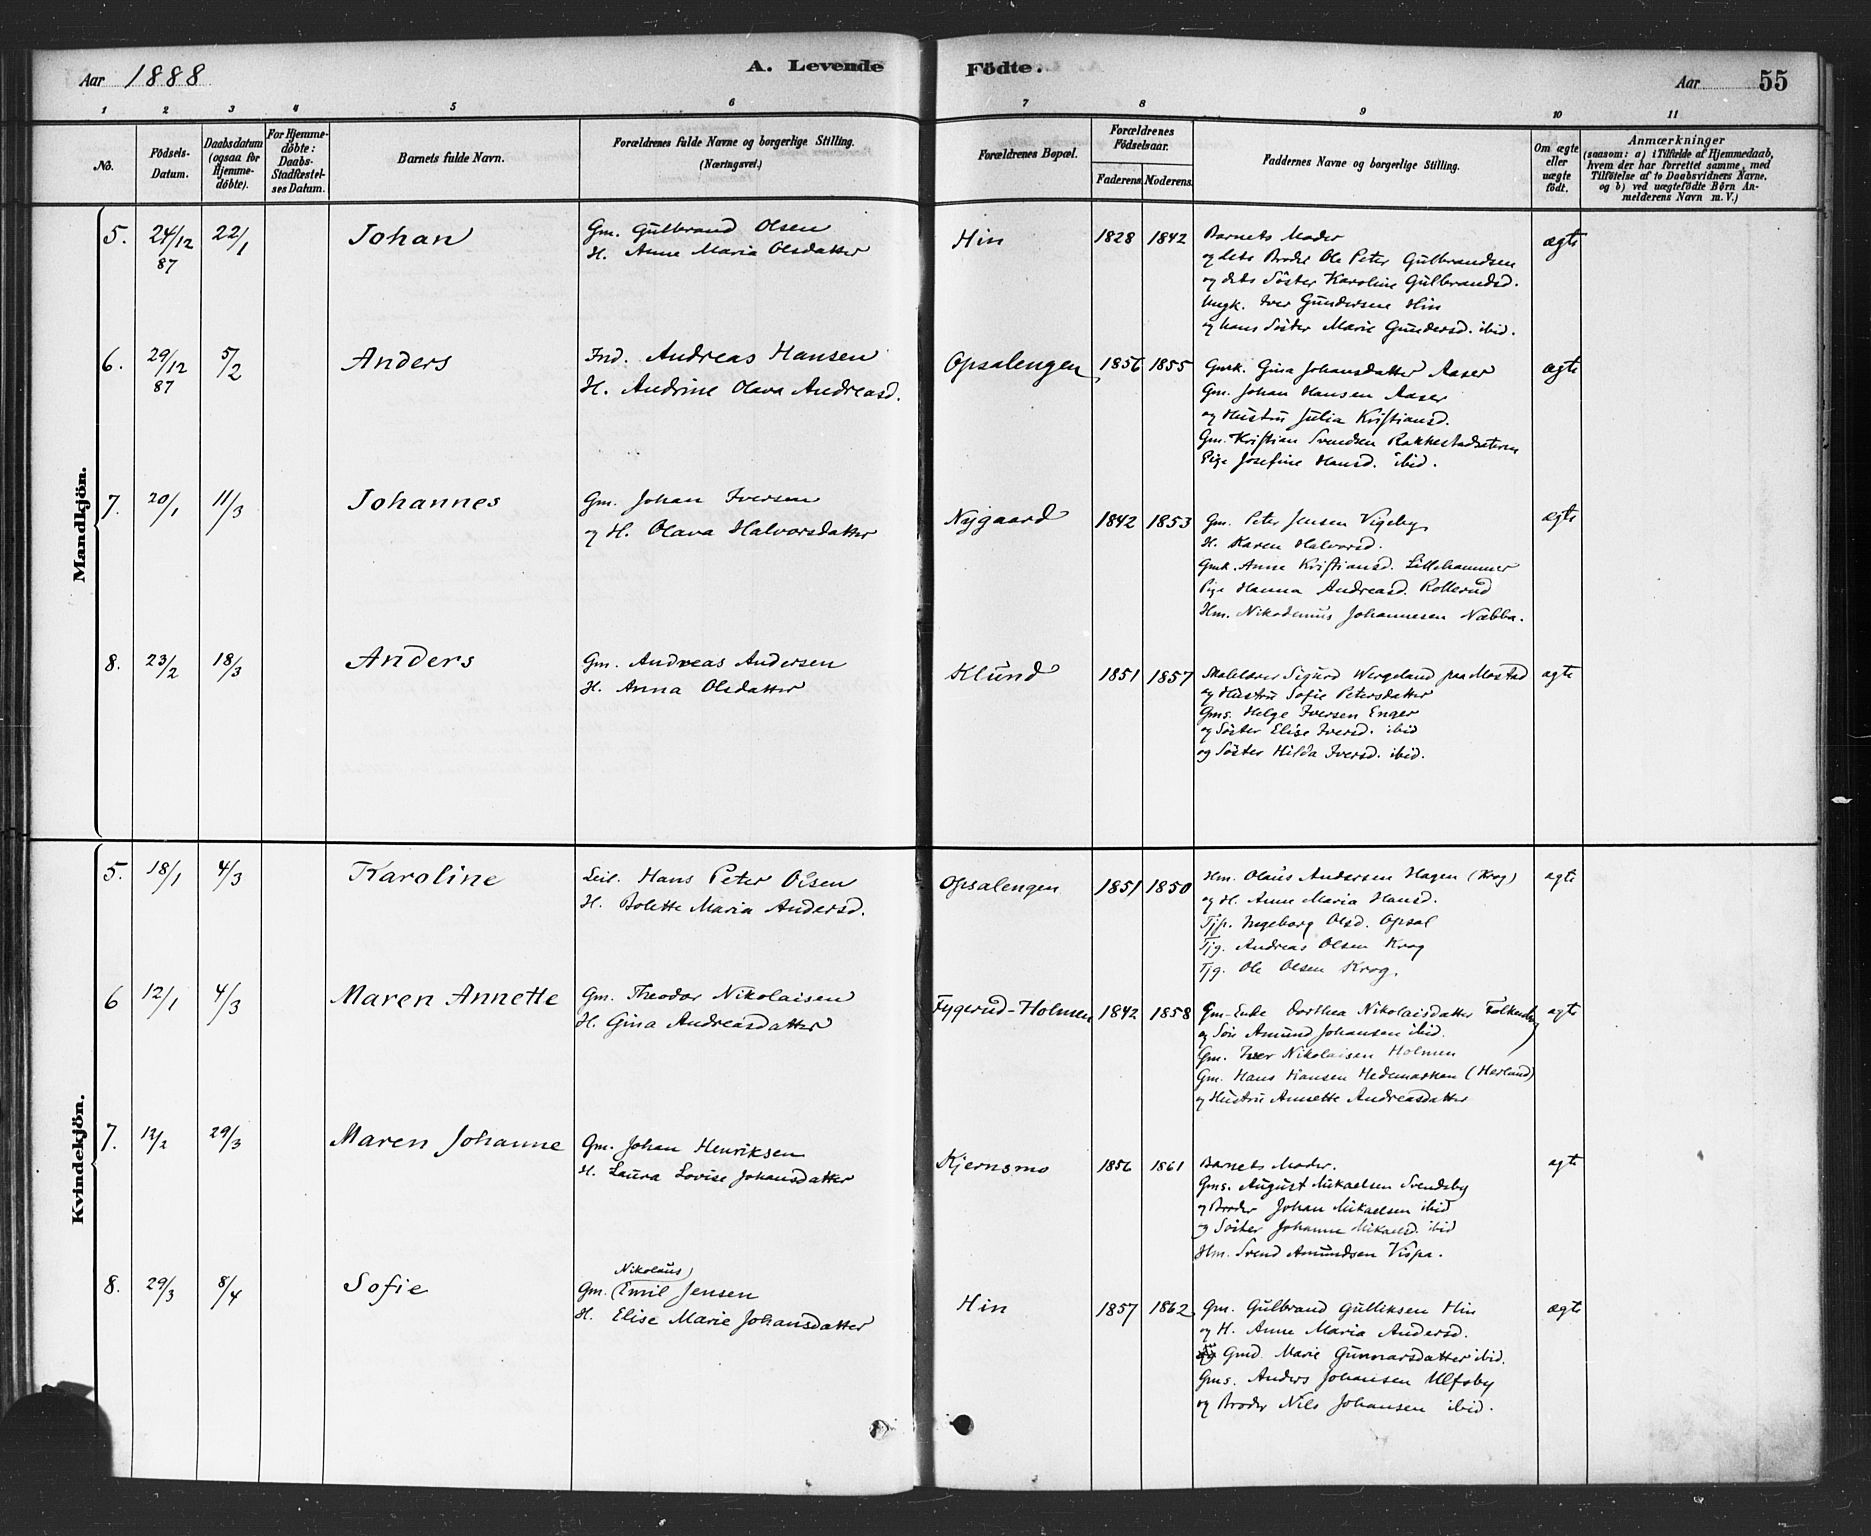 Aar 1888
A. Levende
Födte.
Aar 55
1 2 3 4 5 6 7 8 9 10 11
No.
Födsels-Datum.
Daabsdatum (ogsaa for Hjemmedöbte).
For Hjemmedöbte: Daabs-Stadfæstelses Datum.
Barnets fulde Navn.
Forældrenes fulde Navne og borgerlige Stilling. (Næringsvei.)
Forældrenes Bopæl.
Forældrenes Födselsaar.
Faderens. Moderens.
Faddernes Navne og borgerlige Stilling.
Om ægte eller uægte födt.
Anmærkninger
(saasom: a) i Tilfælde af Hjemmedaab, hvem der har forrettet samme, med Tilföielse af to Daabsvidners Navne. og b) ved uægtefödte Börn Anmelderens Navn m. V.)
Mandkjön.
5. 24/12 87 22/1 Johan
Gm. Gulbrand Olsen
H. Anne Maria Olsdatter
Hin 1828 1842
Barnets Moder
og dets Broder Ole Peter Gulbrandsen
og dets Söster Karoline Gulbrandsd.
Ungk. Iver Gundersen Hin
og hans Söster Marie Gundersd. ibid.
ægte
6. 29/12 87 5/2 Anders
Ind. Andreas Hansen
H. Andrine Olava Andreasd.
Opsalengen 1856 1855
Gmk. Gina Johansdatter Aaser
Gm. Johan Hansen Aaser
og Hustru Julia Kristiansd.
Gm. Kristian Svendsen Rakkestadseteren
Pige Josefine Hansd. ibid.
ægte
7. 20/1 11/3 Johannes
Gm. Johan Iversen
og H. Olava Halvorsdatter
Nygaard 1842 1853
Gm. Peter Jensen Vigeby
H. Karen Halvorsd.
Gmk. Anne Kristiansd. Lillehammer
Pige Hanna Andreasd. Rollerud
Hm. Nikodemus Johannesen Nabba.
ægte
8. 23/2 18/3 Anders
Gm. Andreas Andersen
H. Anna Olsdatter
Klund 1851 1857
Skolelærer Sigurd Wergeland paa Mostad
og Hustru Sofie Petersdatter
Gms. Helge Iversen Enger
og Söster Elise Iversd. ibid
og Söster Hilda Iversd. ibid.
ægte
Kvindekjön.
5. 18/1 4/3 Karoline
Leil. Hans Peter Olsen
H. Bolette Maria Andersd.
Opsalengen 1851 1850
Hm. Olaus Andersen Hagen (Krog)
og H. Anne Maria Hansd.
Tjp. Ingeborg Olsd. Opsal
Tjg. Andreas Olsen Krog
Tjg. Ole Olsen Krog.
ægte
6 12/1 4/3 Maren Annette
Gm. Theodor Nikolaisen
H. Gina Andreasdatter
Fygerud-Holmen 1842 1858
Gm-Enke Dorthea Nikolaisdatter
og Sön Amund Johansen ibid.
Gm. Iver Nikolaisen Holmen
Gm. Hans Hansen Hedemarken (Herland)
og Hustru Annette Andreasdatter
ægte
7. 12/2 29/3 Maren Johanne
Gm. Johan Henriksen
H. Laura Lovise Johansdatter
Kjernsmo 1856 1861
Barnets Moder.
Gms. August Mikaelsen Svendsby
og Broder Johan Mikaelsen ibid
og Söster Johanne Mikaelsd. ibid
Hm. Svend Amundsen Vispa.
ægte
8. 29/3 8/4 Sofie
Nikolaus
Gm. Emil Jensen
H. Elise Marie Johansdatter
Hin 1857 1862
Gm. Gulbrand Gulliksen Hin
og H. Anne Maria Andersd.
Gmd. Marie Gunnarsdatter ibid.
Gms. Anders Johansen Ulfsby
og Broder Nils Johansen ibid.
ægte